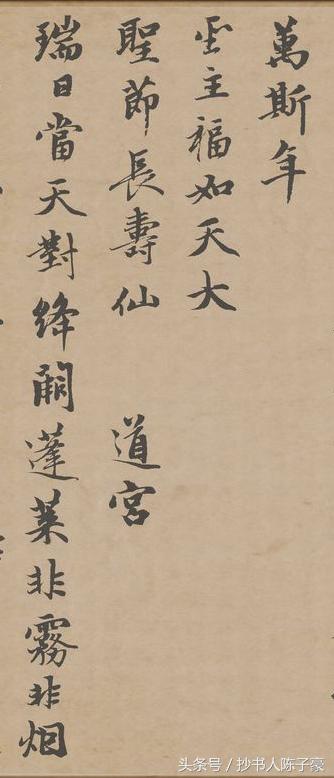 萬斯年
主福如天大
聖節長壽仙 道宮
瑞日當天對絳闕蓬萊非霧非烟
头条号 / 抄书人陈子豪